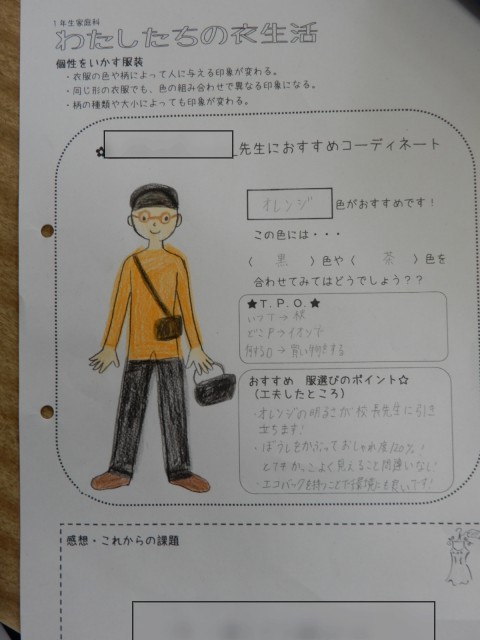 1年生家庭科
わたしたちの衣生活
個性をいかす服装
・衣服の色や柄によって人に与える印象が変わる。
・同じ形の衣服でも、色の組み合わせで異なる印象になる。
・柄の種類や大小によっても印象が変わる。
先生におすすめコーディネート
オレンジ 色がおすすめです!
この色には・・・
〈 黒 〉色や〈 茶 〉色を
合わせてみてはどうでしょう??
★T.P.O.★
いつ?→秋
どこ?→イオンで
何する?→買い物をする
おすすめ 服選びのポイント☆
(工夫したところ)
・オレンジの明るさが校長先生に引き
立ちます!
・ぼうしをかぶっておしゃれ度120%!
とてもかっこよく見えること間違いなし!
・エコバックを持つことで環境にも良いです!
感想・これからの課題